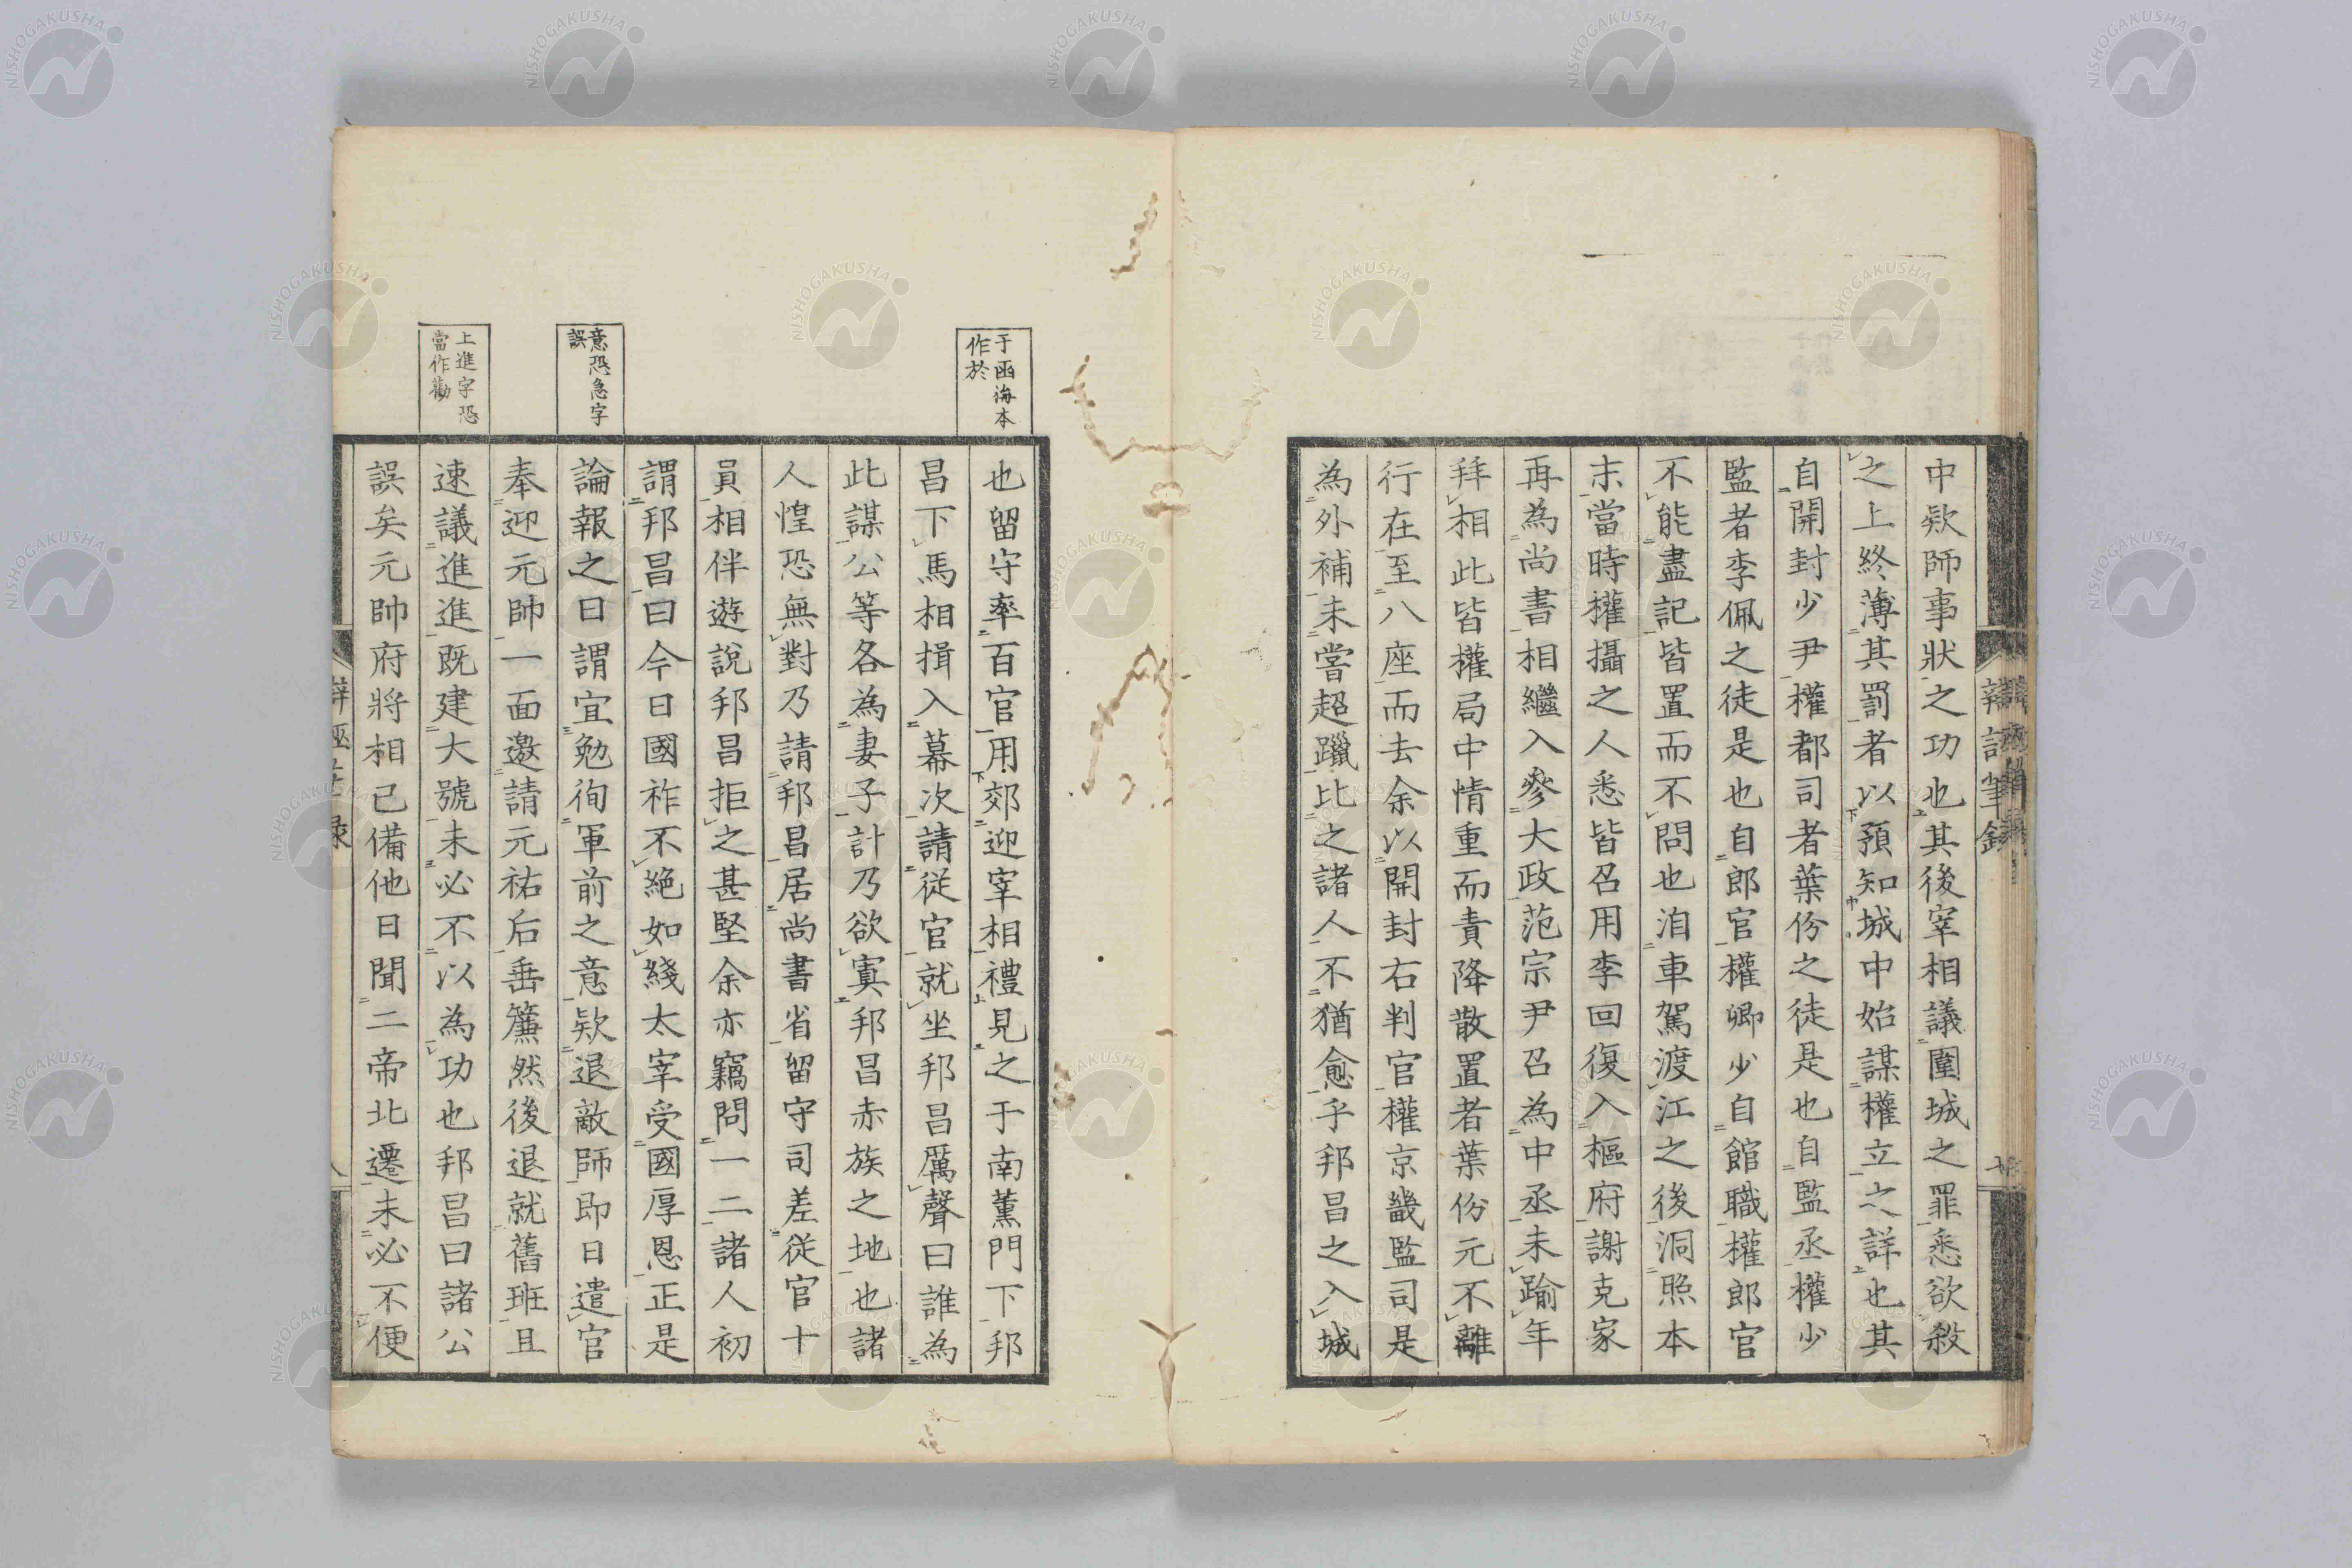 中欵師事狀之功也其後宰相議圍城之罪悉欲殺
之上終薄其罰者以預知城中始謀權立之詳也其
自開封少尹權都司者葉份之徒是也自監丞權少
監者李佩之徒是也自郎官權卿少自館職權郎官
不能盡記皆置而不問也洎車駕渡江之後洞照本
末當時權攝之人悉皆召用李回復入樞府謝克家
再為尚書相繼入參大政范宗尹召為中丞未踰年
拜相此皆權局中情重而責降散置者葉份元不離
行在至八座而去余以開封右判官權京畿監司是
為外補未嘗超躐比之諸人不猶愈乎邦昌之入城
于函海本
作於
意恐急字
誤
上進字恐
當作勸
也留守率百官用郊迎宰相禮見之于南薰門下邦
昌下馬相揖入幕次請從官就坐邦昌厲聲曰誰為
此謀公等各為妻子計乃欲寘邦昌赤族之地也諸
人惶恐無對乃請邦昌居尚書省留守司差從官十
員相伴遊說邦昌拒之甚堅余亦竊問一二諸人初
謂邦昌曰今日國祚不絕如綫太宰受國厚恩正是
論報之日謂宜勉徇軍前之意欵退敵師即日遣官
奉迎元帥一面邀請元祐后垂簾然後退就舊班且
速議進進既建大號未必不以為功也邦昌曰諸公
誤矣元帥府將相已備他日聞二帝北遷未必不便